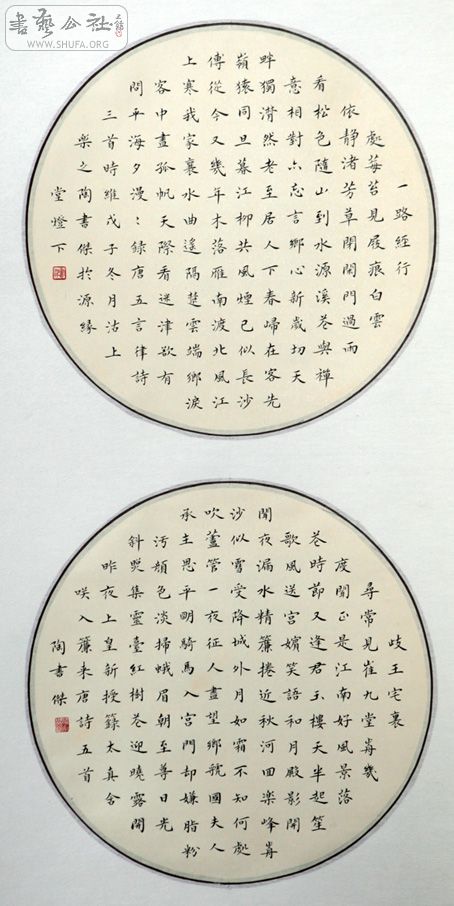 書藝公社
WWW.SHUFA.ORG
一路經行
處莓苔見屐痕白雲
依静渚芳草閉閑門過雨
看松色隨山到水源溪花與禪
意相對亦忘言鄉心新歲切天
畔獨潸然老至居人下春歸在客先
嶺猿同旦暮江柳共風煙已似長沙
傅從今又幾年木落雁南渡北風江
上寒我家襄水曲遥隔楚雲端鄉淚
客中盡孤帆天際看迷津欲有
問平海夕漫〻録唐五言律詩
三首時維戊子冬月沽上
樂之陶書傑於源緣
堂燈下
岐王宅裏
尋常見崔九堂歬幾
度聞正是江南好風景落
花時節又逢君玉樓天半起笙
歌風送宮嬪笑語和月殿影開
聞夜漏水精簾捲近秋河回樂峰歬
沙似雪受降城外月如霜不知何處
吹蘆管一夜征人盡望鄉虢國夫人
承主恩平明騎馬入宮門却嫌脂粉
污顏色淡掃蛾眉朝至尊日光
斜照集靈臺紅樹花迎曉露開
昨夜上皇新授籙太真含
咲入簾來唐詩五首
陶書傑